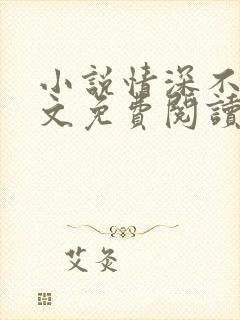 小説情深不
文免費閱讀
艾灸